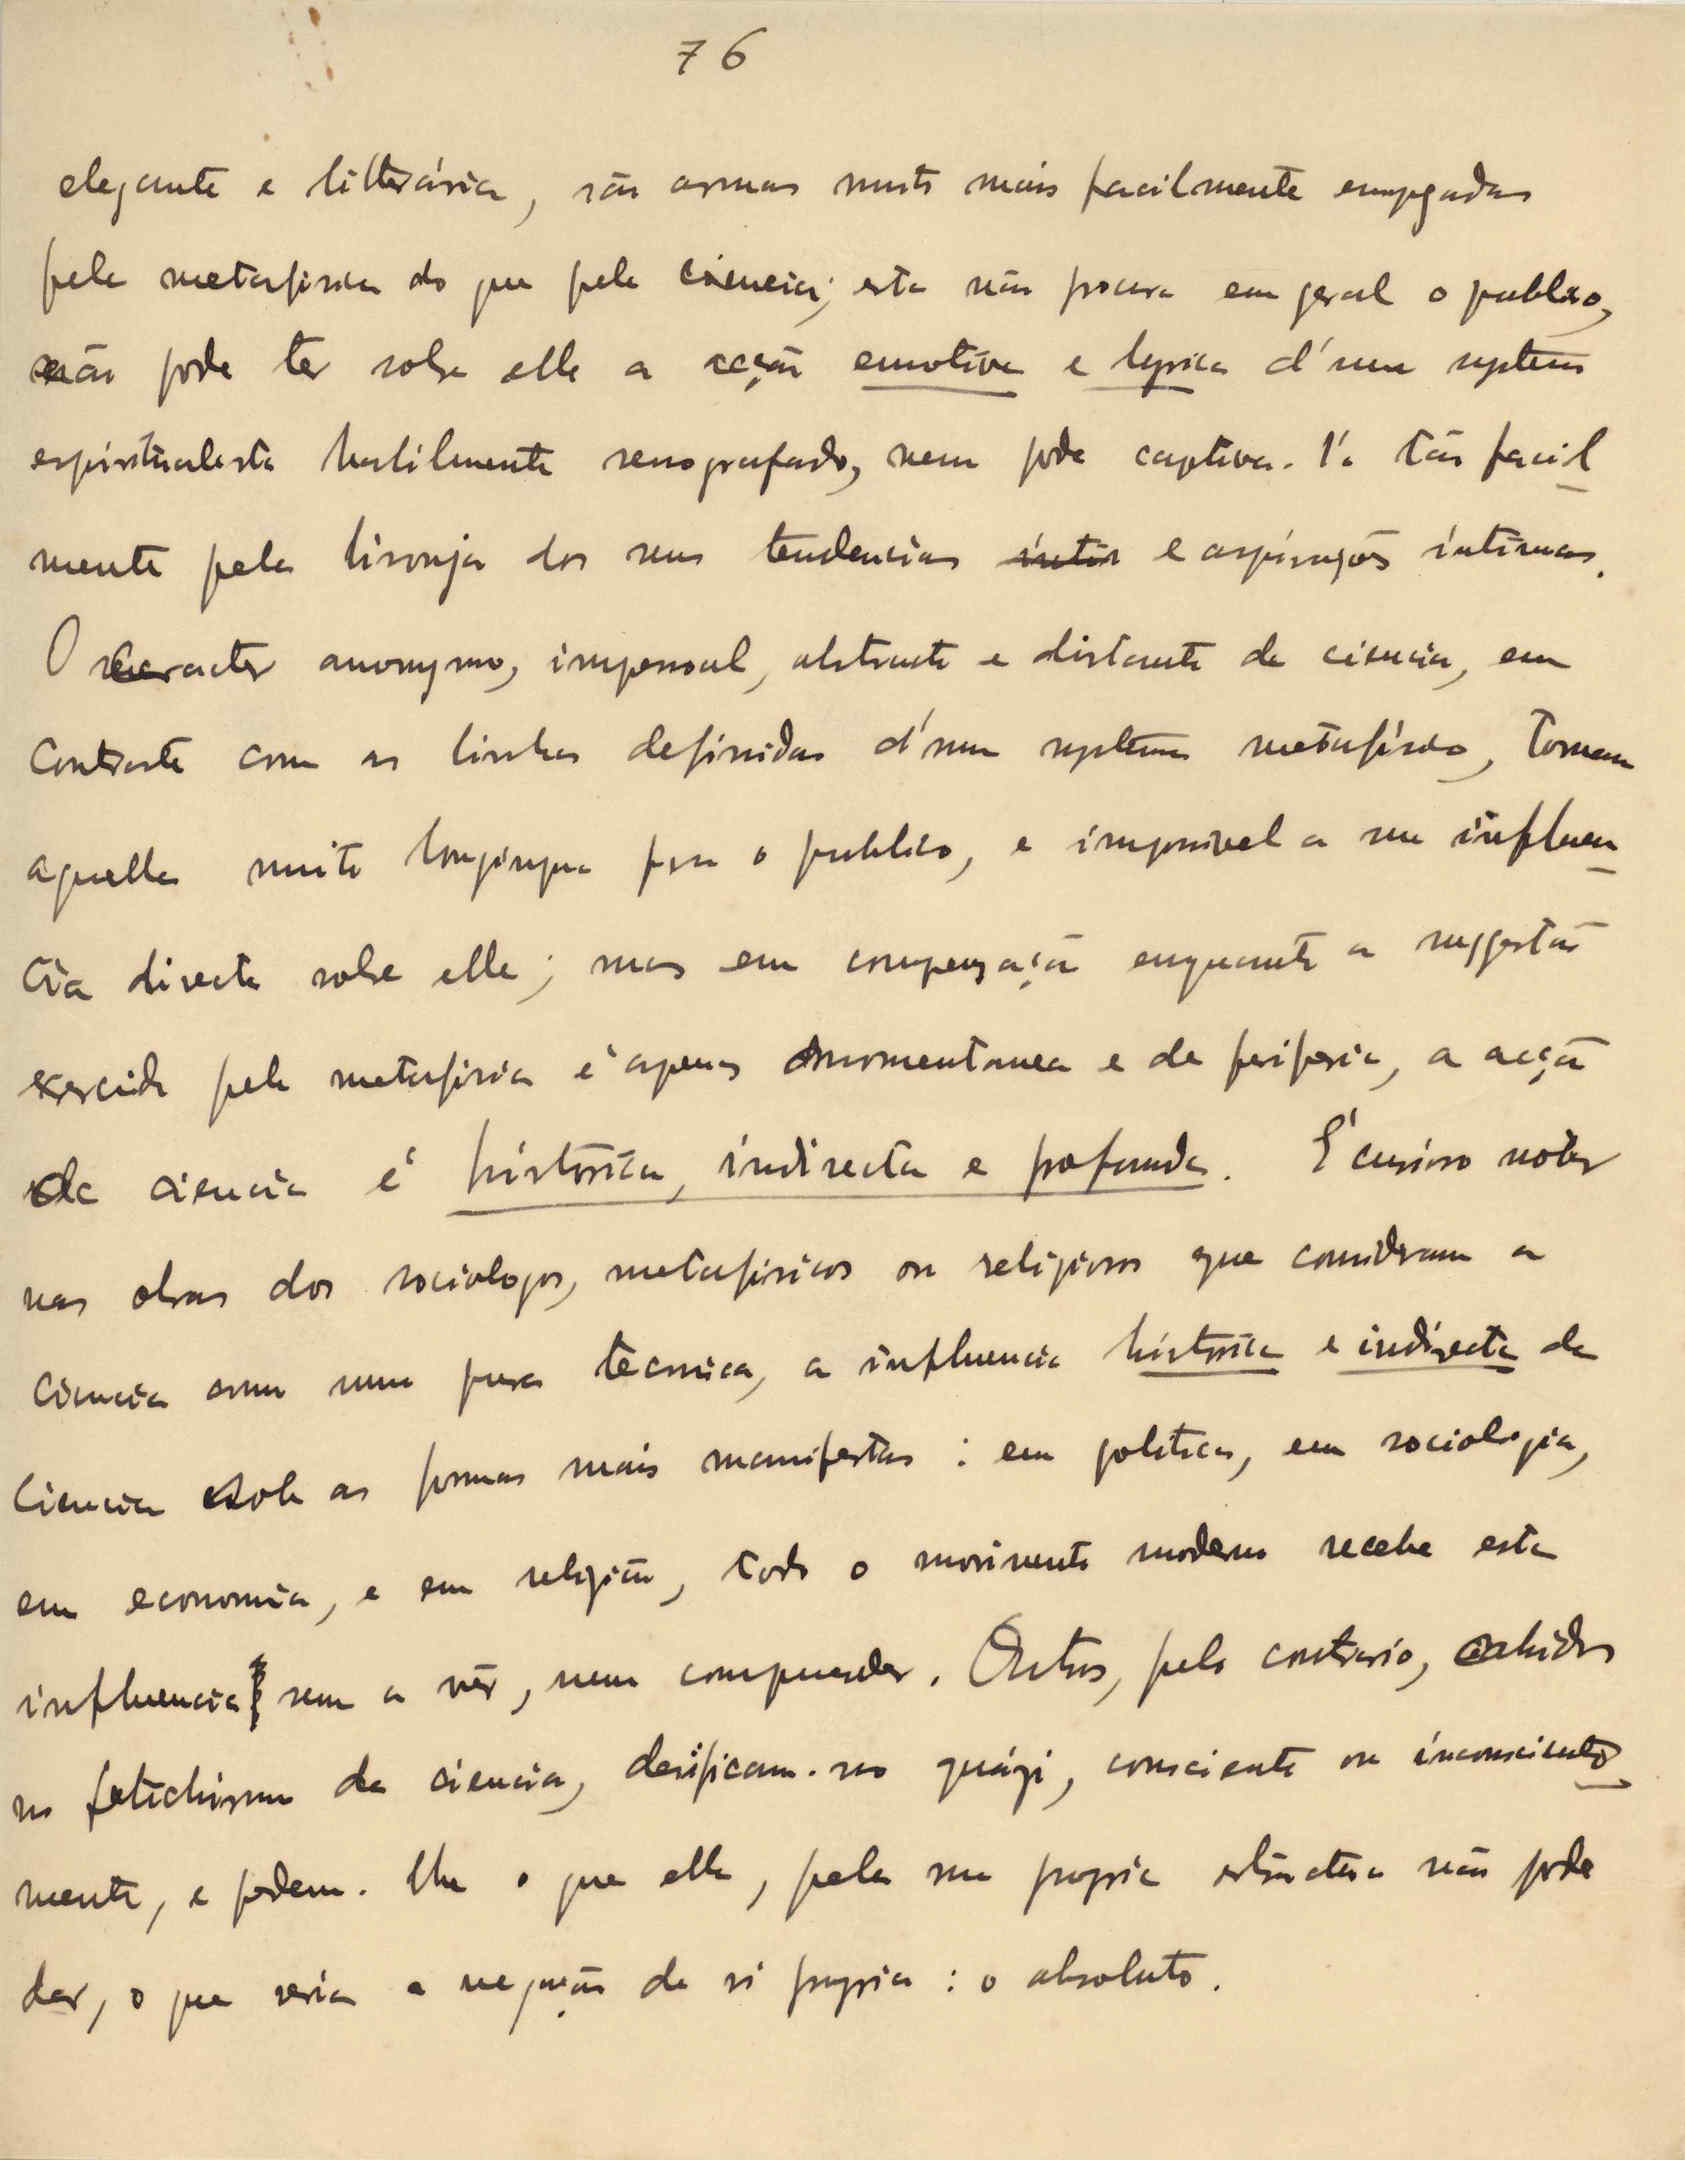 76
elegante e litterária, são armas muito mais facilmente empregadas
pela metafisica do que pela ciencia; esta não procura em geral o publico,
não pode ter sobre elle a acção emotiva e lyrica d'um systema
espiritualista habilmente senografado, nem pode captiva-l'o tão facil
mente pela lisonja dos seus tendencias intin e aspirações intimas.
O caracter anonymo, impessoal, abstracto e distante da ciencia, em
contraste com as linhas definidas d'um systema metafísico, tornam
aquella muito longinqua para o publico, e impossivel a sua influen
cia directa sobre elle; mas em compensação enquanto a suggestão
exercida pela metafisica é apenas momentanea e de periferia, a acção
da ciencia é historica, indirecta e profunda. É curioso notar
nas obras dos sociologos, metafisicos ou religiosos que consideram a
ciencia como uma pura tecnica, a influencia historica e indirecta da
ciencia sob as formas mais manifestas: em politica, em sociologia,
em economia, e em religião, todo o movimento moderno recebe esta
influencia sem a vêr, nem comprender. Outros, pelo contrario, cahidos
no fetichismo da ciencia, deificam-na quázi, consciente ou inconsciente
mente, e pedem-lhe o que ella, pela sua propria estructura não pode
dar, o que seria a negação de si propria: o absoluto.